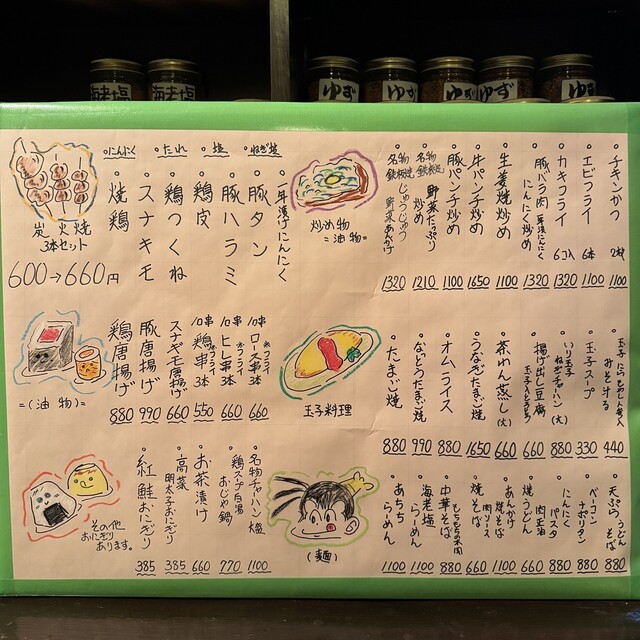 海老塩
海老塩
ゆず
ゆず
ゆず
ゆず
ゆず
。にんにく
。たれ
。塩
。ねぎ塩
炭火焼
3本セット
600→660円
。年漬けにんにく
。豚タン
。豚ハラミ
。鶏皮
。鶏つくね
。スナギモ
。焼鶏
炒め物
=油物=
。チキンかつ 2枚 1100
。エビフライ 6本 1320
。カキフライ 6コ入 1320
。豚バラ肉 年漬にんにく にんにく炒め 1320
。生姜焼炒め 1100
。牛パンチ炒め 1650
。豚パンチ炒め 1100
。名物 鉄板焼 野菜たっぷり炒め 1210
。名物 鉄板焼 じゅうじゅう 野菜あんかけ 1320
=(油物)=
。10串 ロース串3本 串フライ 660
。10串 ヒレ串3本 串フライ 660
。10串 鶏串3本 串フライ 550
。スナギモ唐揚げ 660
。豚唐揚げ 990
。鶏唐揚げ 880
玉子料理
。玉子 にら もやし わかめ入 みそ汁 440
。玉子スープ 330
。いり玉子 ねぎチャーハン(大) 880
。揚げ出し豆腐 玉子入とろとろ 660
。茶わん蒸し(大) 660
。うなぎたまご焼 1650
。オムライス 880
。なっとうたまご焼 990
。たまご焼 880
その他
おにぎり
あります。
。名物チャーハン 大盛 1100
。鶏スープ白湯 おじや鍋 770
。お茶漬け 660
。高菜 明太子おにぎり 385
。紅鮭おにぎり 385
(麺)
。天ぷら うどん そば 880
。ベーコン ナポリタン 880
。にんにく パスタ 880
。焼うどん 肉正油 660
。あんかけ 焼そば 1100
。焼そば 肉ソース 660
。中華そば もちもちの木肉 880
。海老塩 らーめん 1100
。あちち らーめん 1100